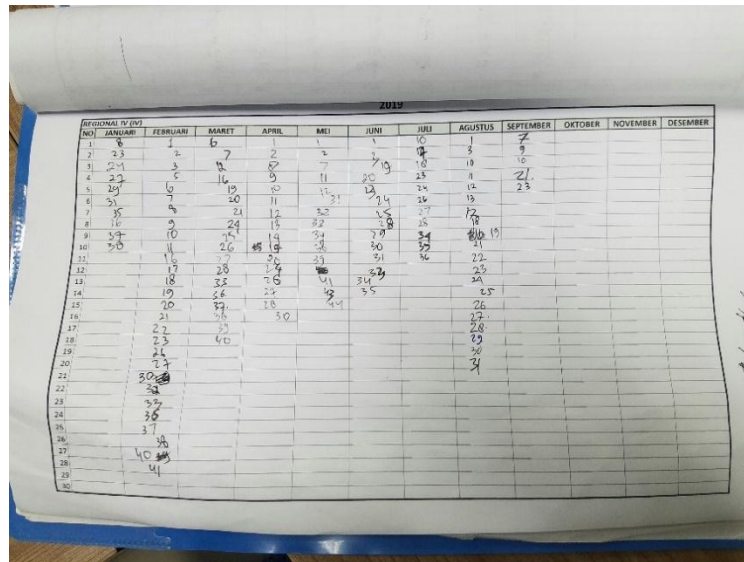 2019
REGIONAL IV (IV)
NO JANUARI FEBRUARI MARET APRIL MEI JUNI JULI AGUSTUS SEPTEMBER OKTOBER NOVEMBER DESEMBER
1 8 1 6 1 1 1 10 1 7
2 23 2 7 2 2 3 9
3 24 3 8 7 19 18 10 10
4 27 5 16 9 11 20 23 11 21
5 29 6 19 10 12 23 24 12 23
6 31 7 20 11 31 24 26 13
7 35 8 21 12 32 25 27 17
8 16 9 24 13 33 28 25 18
9 37 10 25 14 34 29 34 19
10 38 11 26 30 35 21
11 16 27 20 39 31 36 22
12 17 28 24 33 23
13 18 33 26 41 34 24
14 19 36 27 43 35 25
15 20 37 28 44 26
16 21 38 30 27
17 22 39 28
18 23 40 29
19 26 30
20 27 31
21 30
22 32
23 33
24 36
25 37
26 38
27 40
28 41
29
30